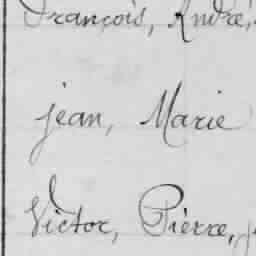 François, André,
jean, Marie
Victor, Pièrre,